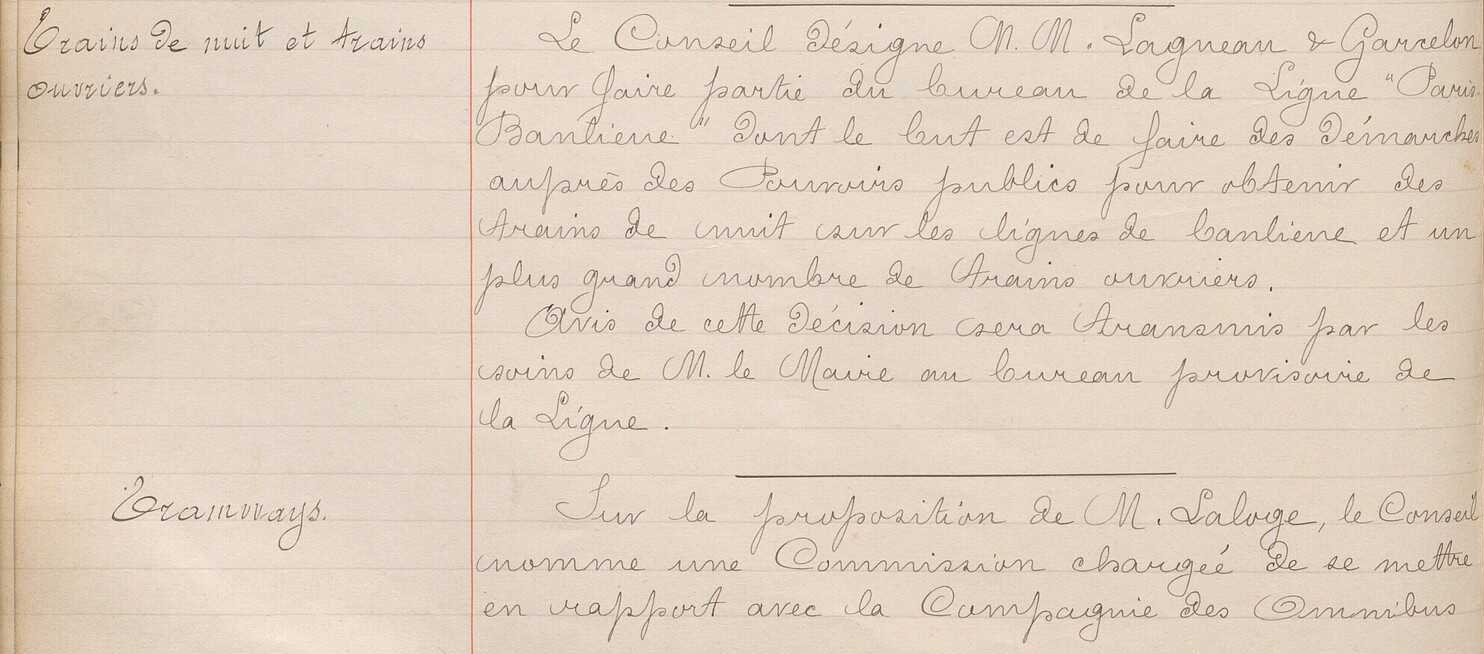 Trains de nuit et trains
ouvriers.
Le Conseil désigne M. M. Lagneau & Garcelon
pour faire partie du bureau de la Ligne "Paris-
Banlieue" dont le but est de faire des démarches
auprès des Pouvoirs publics pour obtenir des
trains de nuit sur les lignes de banlieue et un
plus grand nombre de trains ouvriers.
Avis de cette décision sera transmis par les
soins de M. le Maire au bureau provisoire de
la Ligne.
Tramways.
Sur la proposition de M. Laloge, le Conseil
nomme une Commission chargée de se mettre
en rapport avec la Compagnie des Omnibus